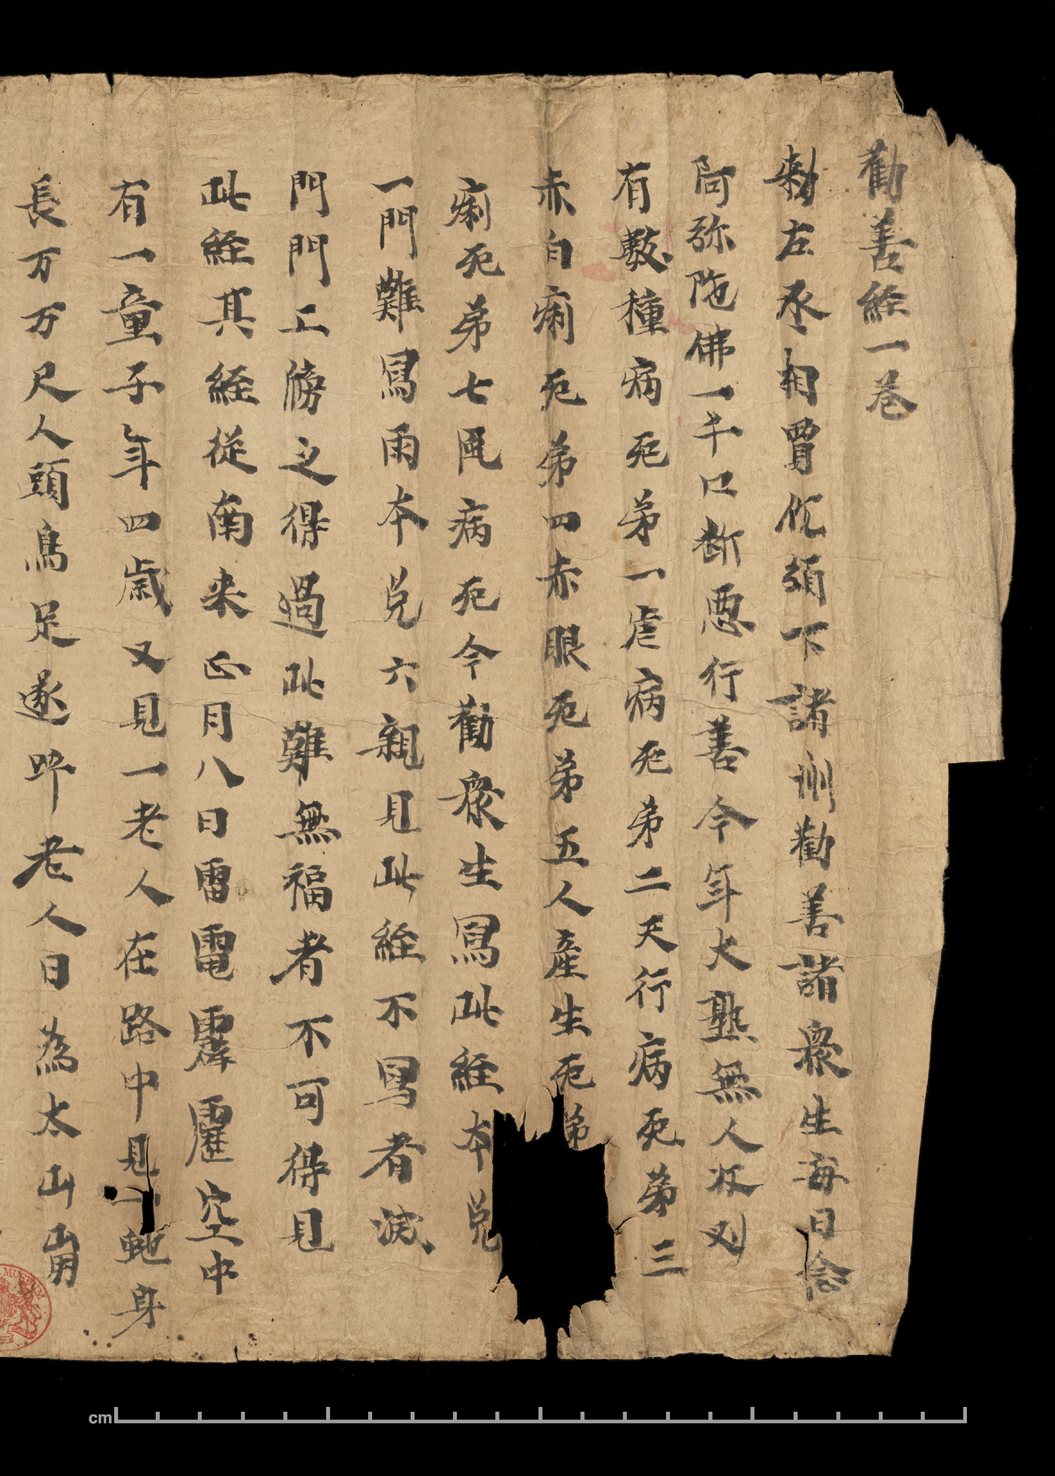 勸善經一卷
勑左丞相賈傀頒下諸州勸善諸衆生每日念
阿弥陁佛一千口斷惡行善今年大熟無人収刈
有數種病死弟一虐病死弟二天行病死弟三
赤白痢死弟四赤眼死弟五人產生死弟
痢死弟七風病死今勸衆生寫此經本免
一門難寫兩本免六親見此經不寫者滅
門門上牓之得過此難無福者不可得見
此經其經從南来正月八日雷電霹靂空中
有一童子年四歲又見一老人在路中見一虵身
長万万尺人頭鳥足遂呼老人曰為太山崩